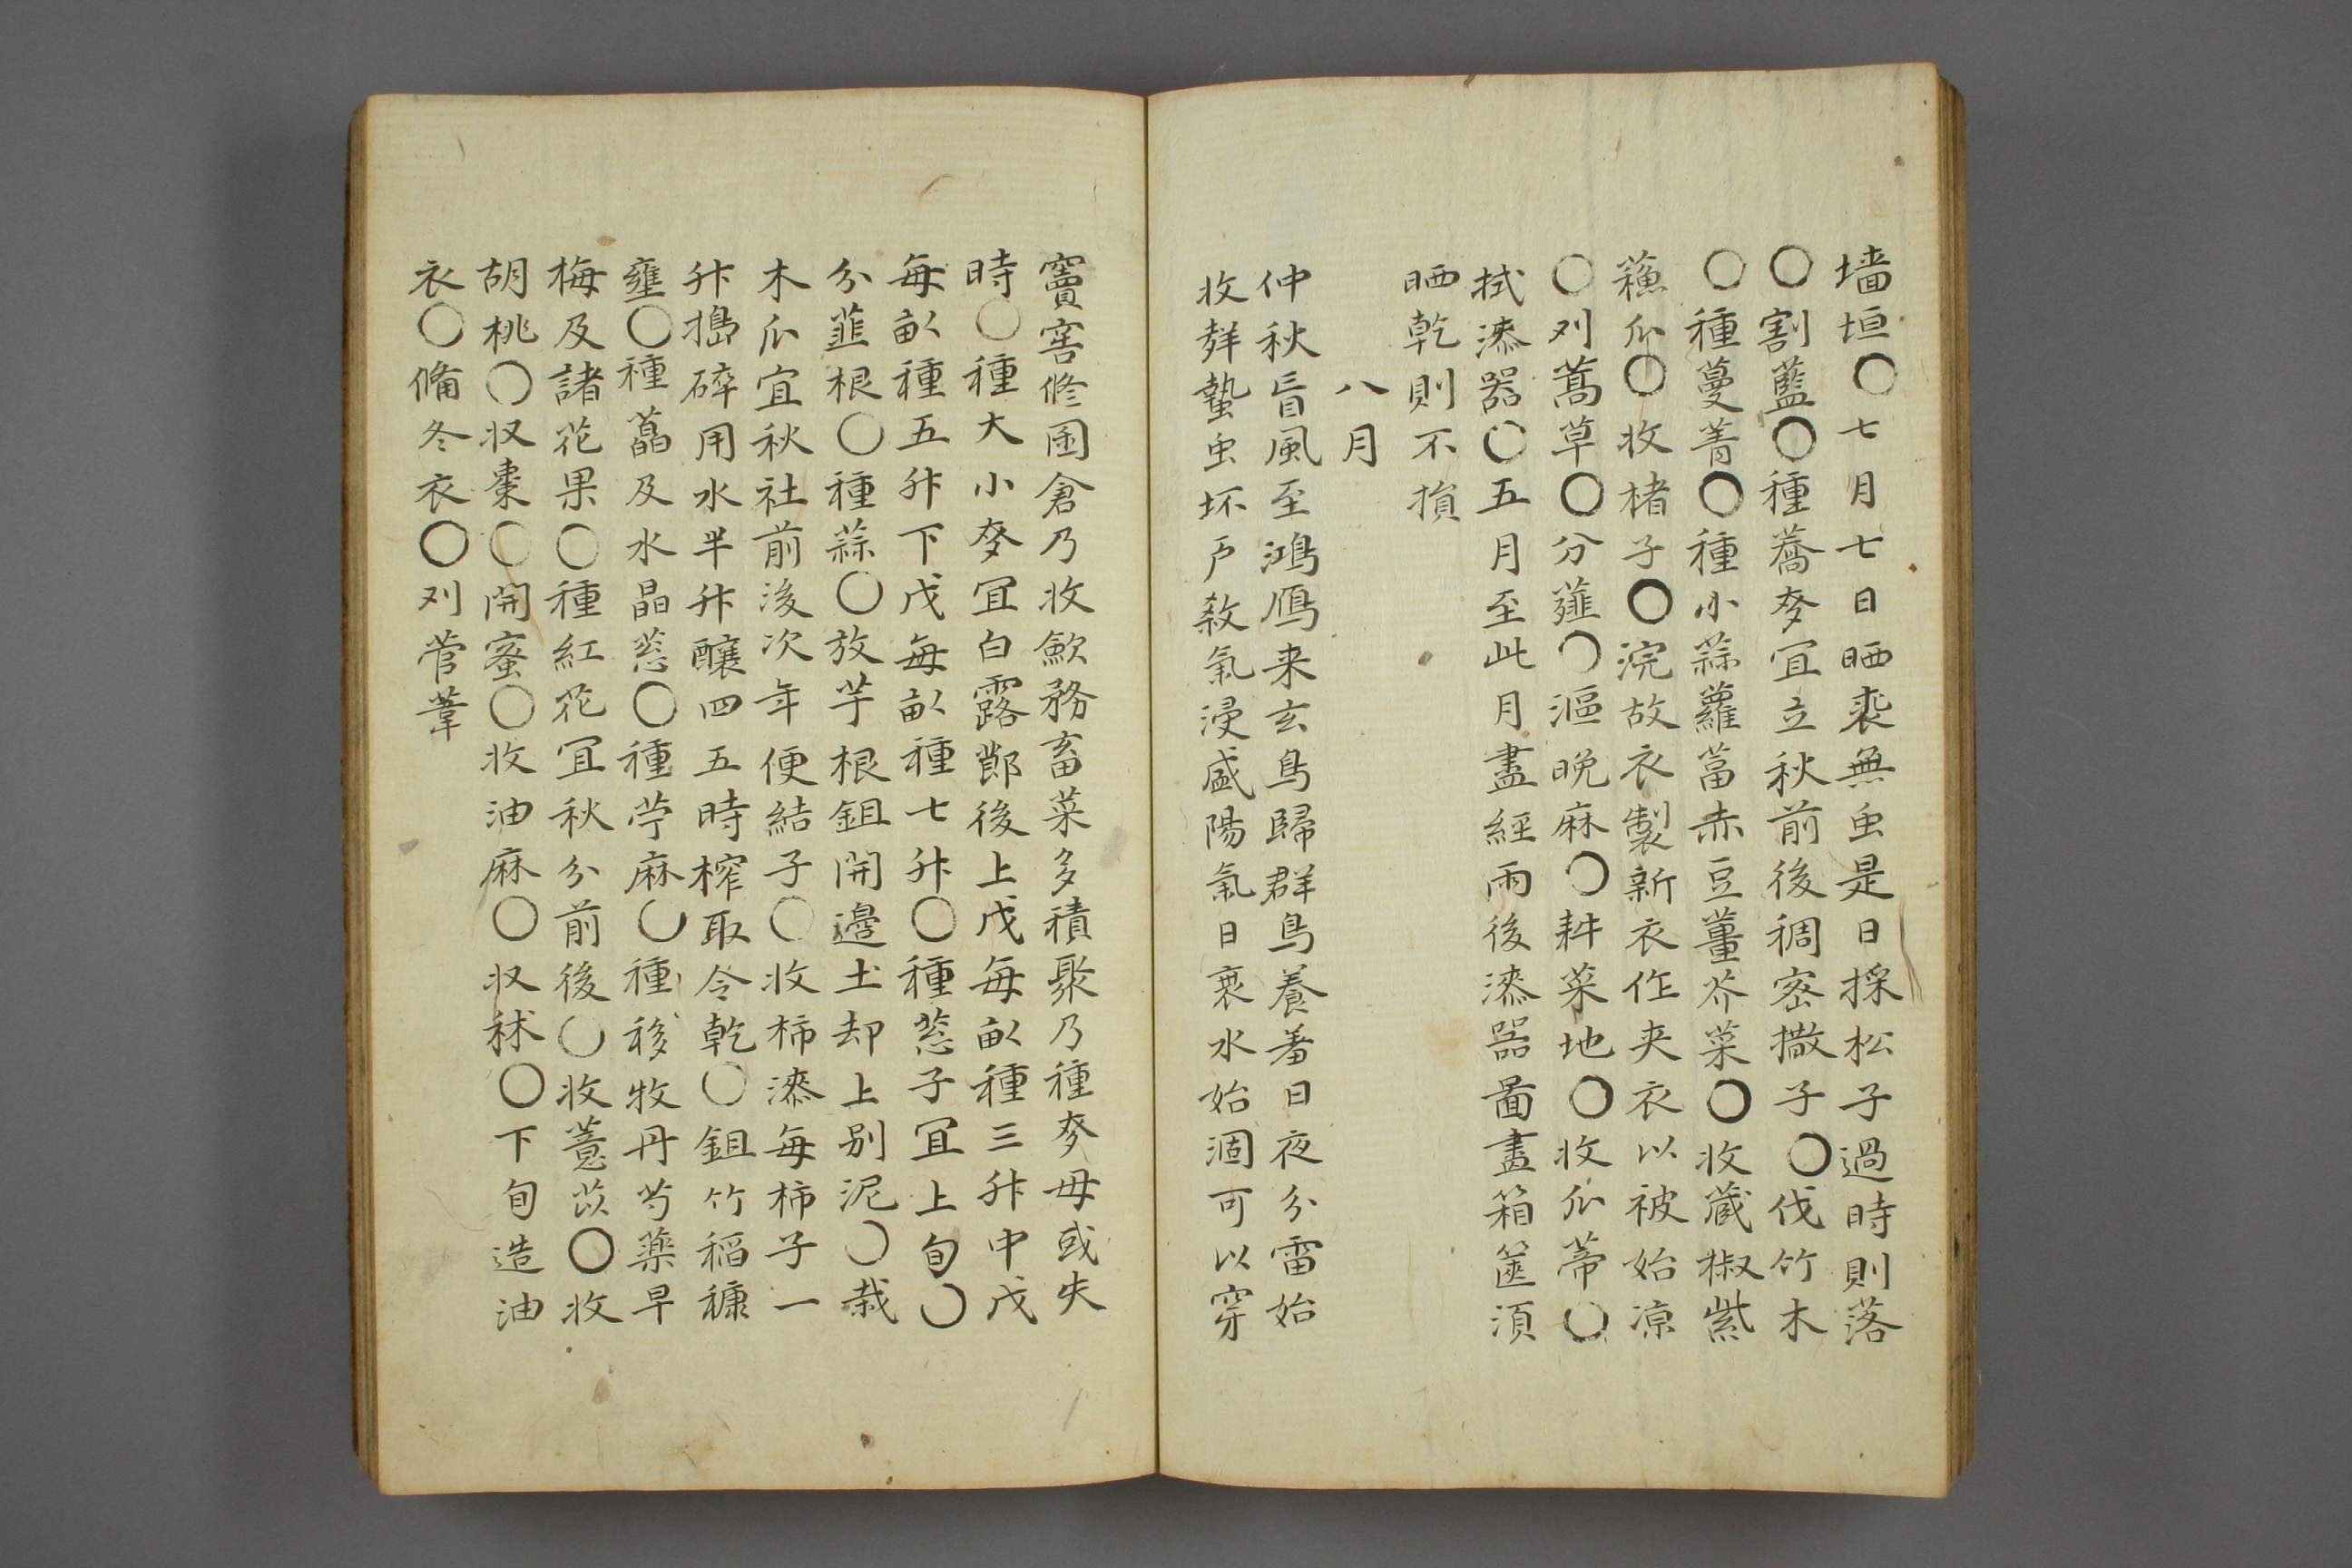 墻垣○七月七日晒裘無虫是日採松子過時則落
○割藍○種蕎麥宜立秋前後稠密撒子○伐竹木
○種蔓菁○種小蒜蘿葍赤豆薑芥菜○收蔵椒紫
蘓瓜○收楮子○浣故衣製新衣作夹衣以被始凉
○刈蒿草○分薤○漚晚麻○耕菜地○收瓜蒂○
拭漆器○五月至此月盡經雨後漆器啚畫箱篋湏
晒乾則不損
八月
仲秋盲風至鴻鴈来玄鳥歸群鳥養羞日夜分雷始
收聲蟄虫坏戶殺氣浸盛陽氣日衰水始涸可以穿
竇窖修囷倉乃收歛務畜菜多積聚乃種麥毋或失
時○種大小麥宜白露節後上戊每畒種三升中戊
每畒種五升下戊每畒種七升○種葱子宜上旬○
分韮根○種蒜○放芋根鉏開邉土却上別泥○栽
木瓜宜秋社前後次年便結子○收柿漆每柿子一
升搗碎用水半升釀四五時榨取令乾○鉏竹稻糠
壅○種藠及水晶葱○種苧麻○種移牧丹芍藥早
梅及諸花果○種紅花宜秋分前後○收薏苡○收
胡桃○収棗○開蜜○收油麻○収秫○下旬造油
衣○備冬衣○刈菅葦